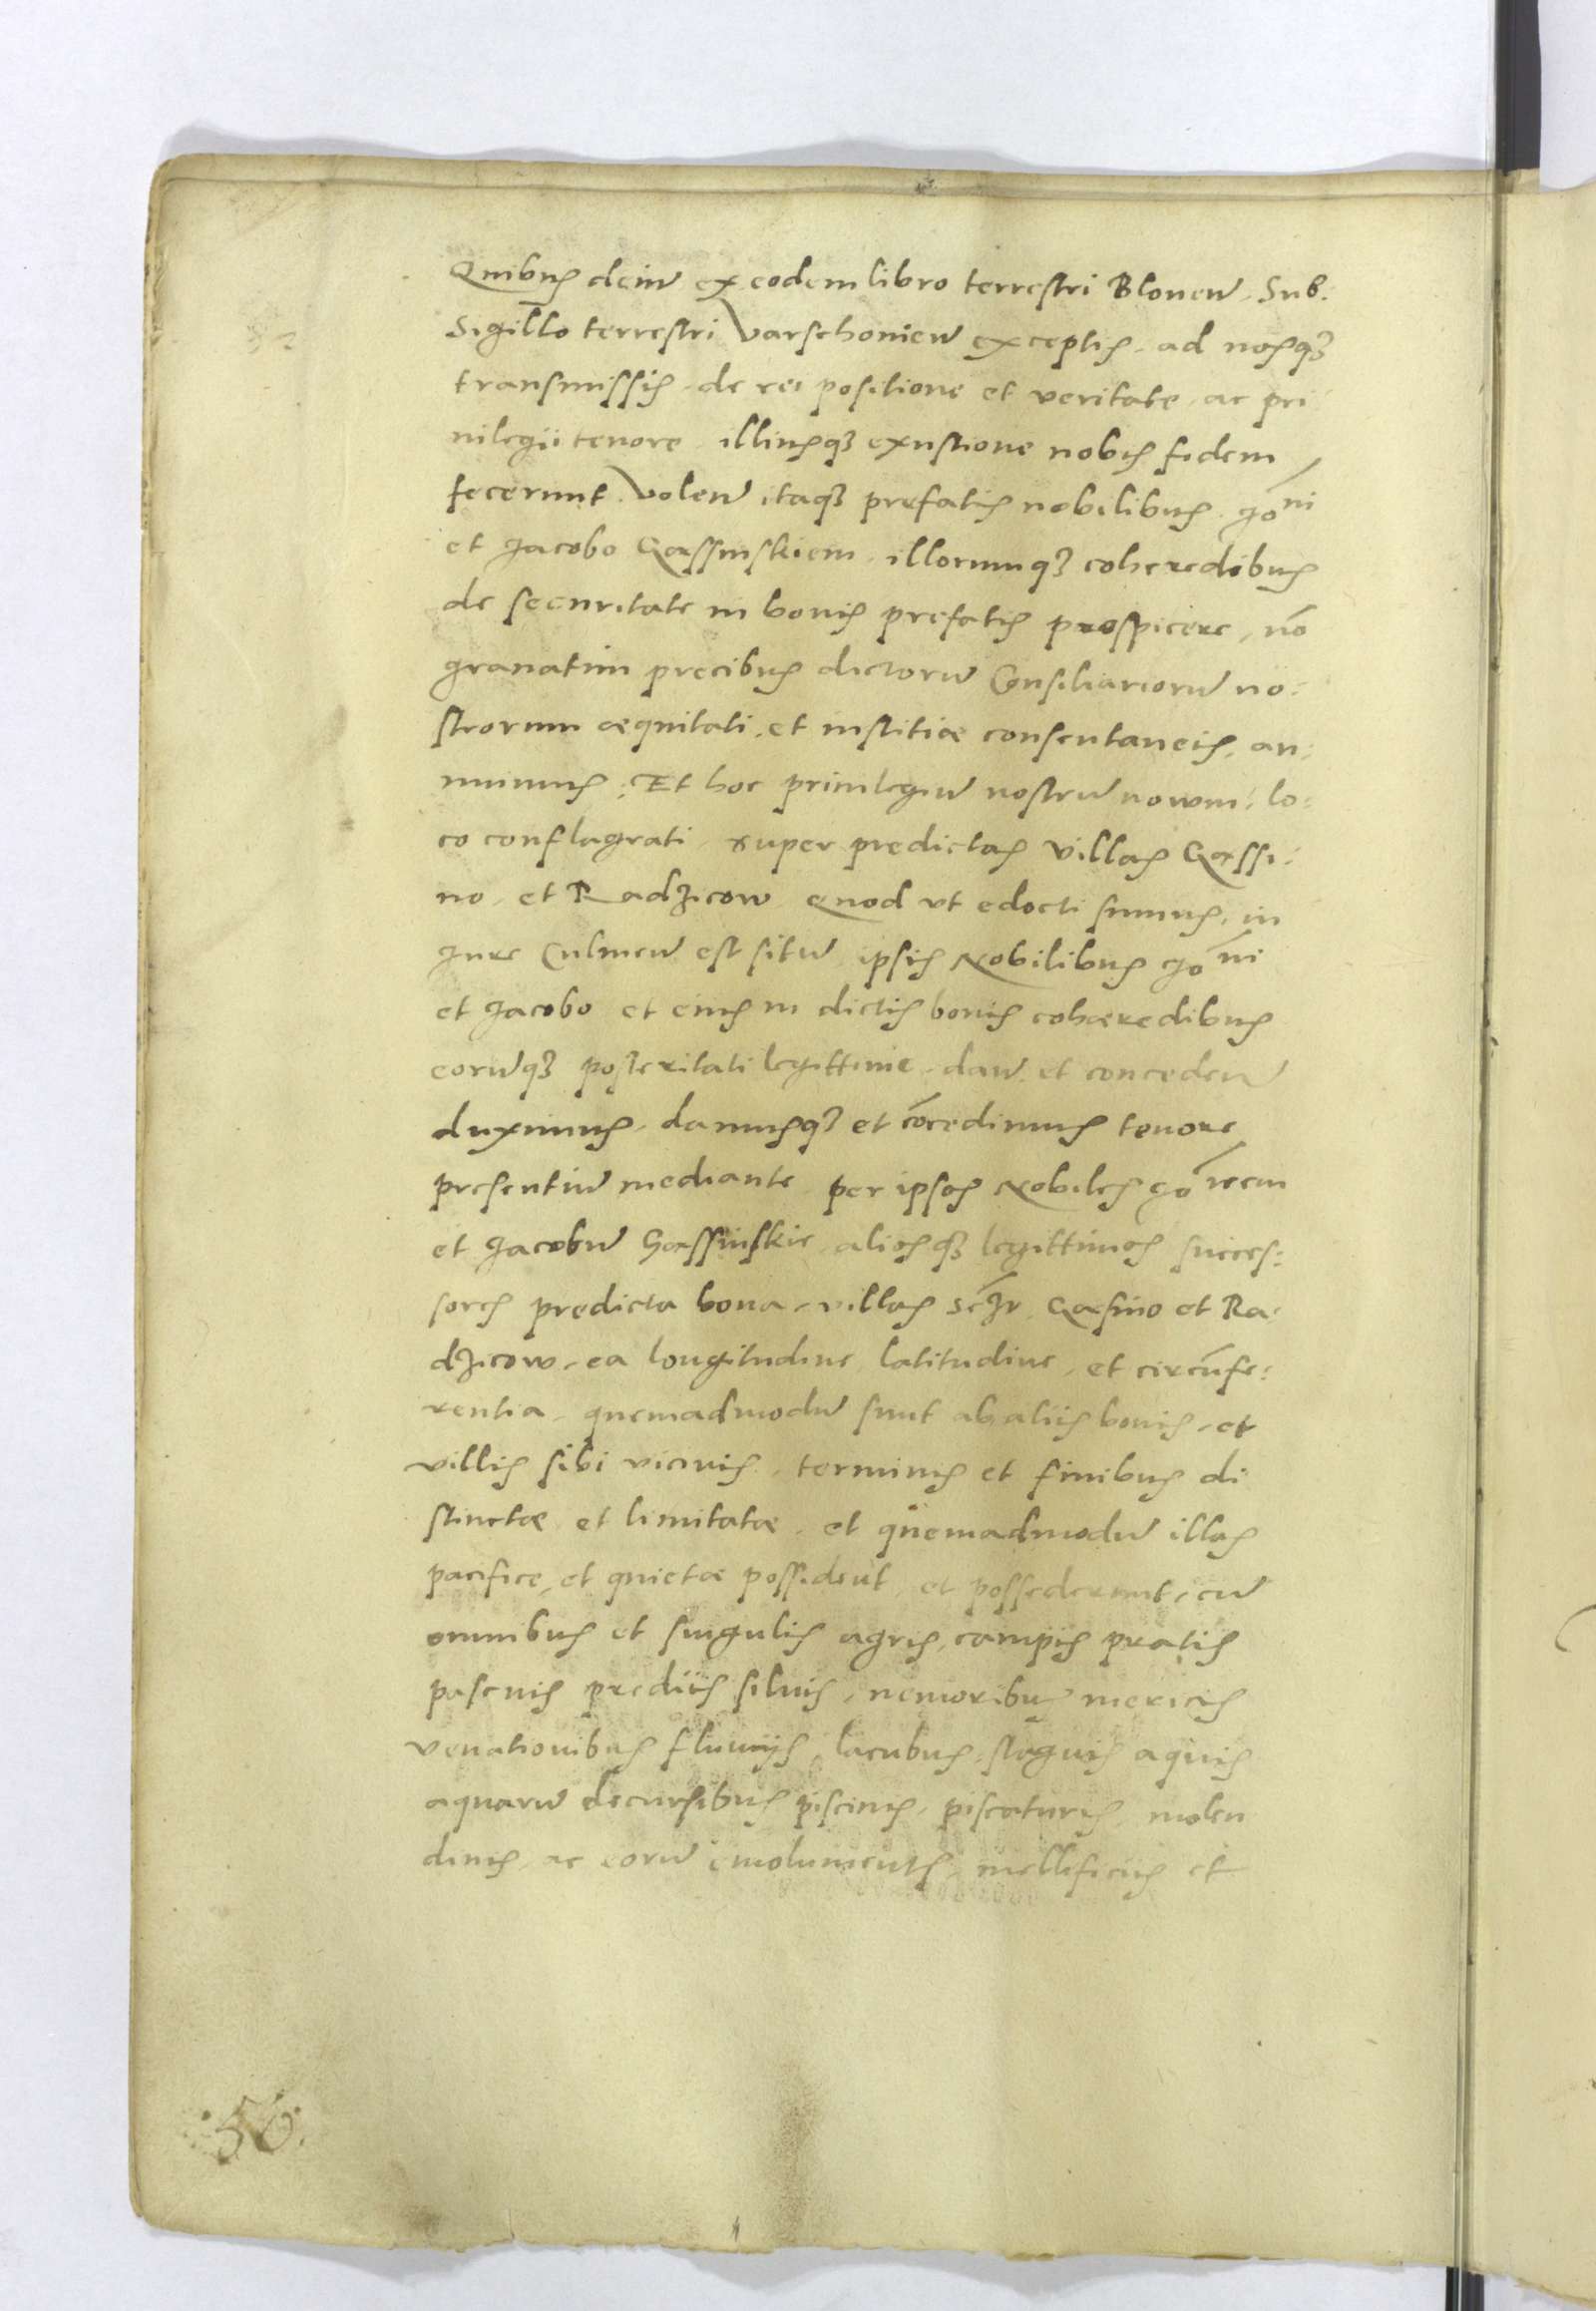 Quibus dein̄ ex eodem libro terrestri Blonen̄. Sub.
Sigillo terrestri Varschonien̄ exceptis. ad nosq₃
transmissis. de rei positione et veritate. ac pri
uilegii tenore. illiusq₃ exustione nobis fidem
fecerunt. Volen̄ itaq₃ prefatis nobilibus. Jōni
et Jacobo Gassinskiem. illorumq₃ coheredibus
de securitate in bonis prefatis prospicere, nō
grauatim precibus dictorū Consiliariorū no:
strorum aequitati. et iustitiae consentaneis. an:
nuimus: Et hoc priuilegiū nostrū nowm: lo:
co conflagrati super predictas villas Gassi:
no. et Radzicow quod vt edocti sumus. in
Jure Culmen̄ est sitū ipsis Nobilibus Jōni
et Jacobo et eius in dictis bonis cohaeredibus
eorūq₃ posteritati legittime. dan̄. et conceden̄
duximus. damusq₃ et cōcedimus tenore
presentiū mediante per ipsos Nobiles Jōnem
et Jacobū Gassinskie aliosq₃ legittimos succes:
sores predicta bona. villas sczt. Gasino et Ra:
dzicow. ea longitudine latitudine. et circūfe:
rentia. quemadmodū sunt ab aliis bonis. et
villis sibi vicinis. terminis et finibus di
stinctae et limitatae. et quemadmodū illas
pacifice et quietae possident. et possederunt. cū
omnibus et singulis agris. campis pratis
pascuis prediis siluis. nemoribus mericis
venationibus fluuijs. lacubus. stagnis aquis
aquarū decursibus piscinis. piscaturis molen
dinis. ac eorū emolumentis. mellificiis et
56.